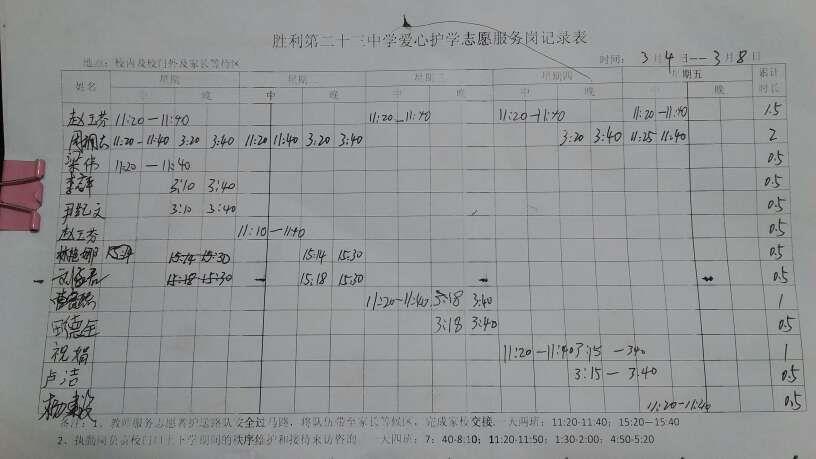 胜利第二十三中学爱心护学志愿服务岗记录表
地点：校内及校门外及家长等待区 时间：3月4日--3月8日
姓名 星期一 星期二 星期三 星期四 星期五 累计时长
中 晚 中 晚 中 晚 中 晚 中 晚
赵玉芬 11:20-11:40 11:20-11:40 11:20-11:40 11:20-11:40 1.5
11:20-11:40 3:20 3:40 11:20 11:40 3:20 3:40 3:20 3:40 11:25 11:40 2
伟 11:20-11:40 0.5
3:10 3:40 0.5
文 3:10 3:40 0.5
赵玉芬 11:10-11:40 0.5
15:14 15:14 15:30 15:14 15:30 0.5
15:18 15:30 15:18 15:30 0.5
11:20-11:40 3:18 3:40 1
田德全 3:18 3:40 0.5
祝娟 11:20-11:40 3:15-3:40 1
卢洁 3:15-3:40 0.5
11:20-11:40 0.5
备注：1、教师服务志愿者护送路队安全过马路，将队伍带至家长等候区，完成家校交接。一大两班：11:20-11:40；15:20-15:40
2、执勤岗负责校门口上下学期间的秩序维护和接待来访咨询 一天四班：7：40-8:10；11:20-11:50；1:30-2:00；4:50-5:20